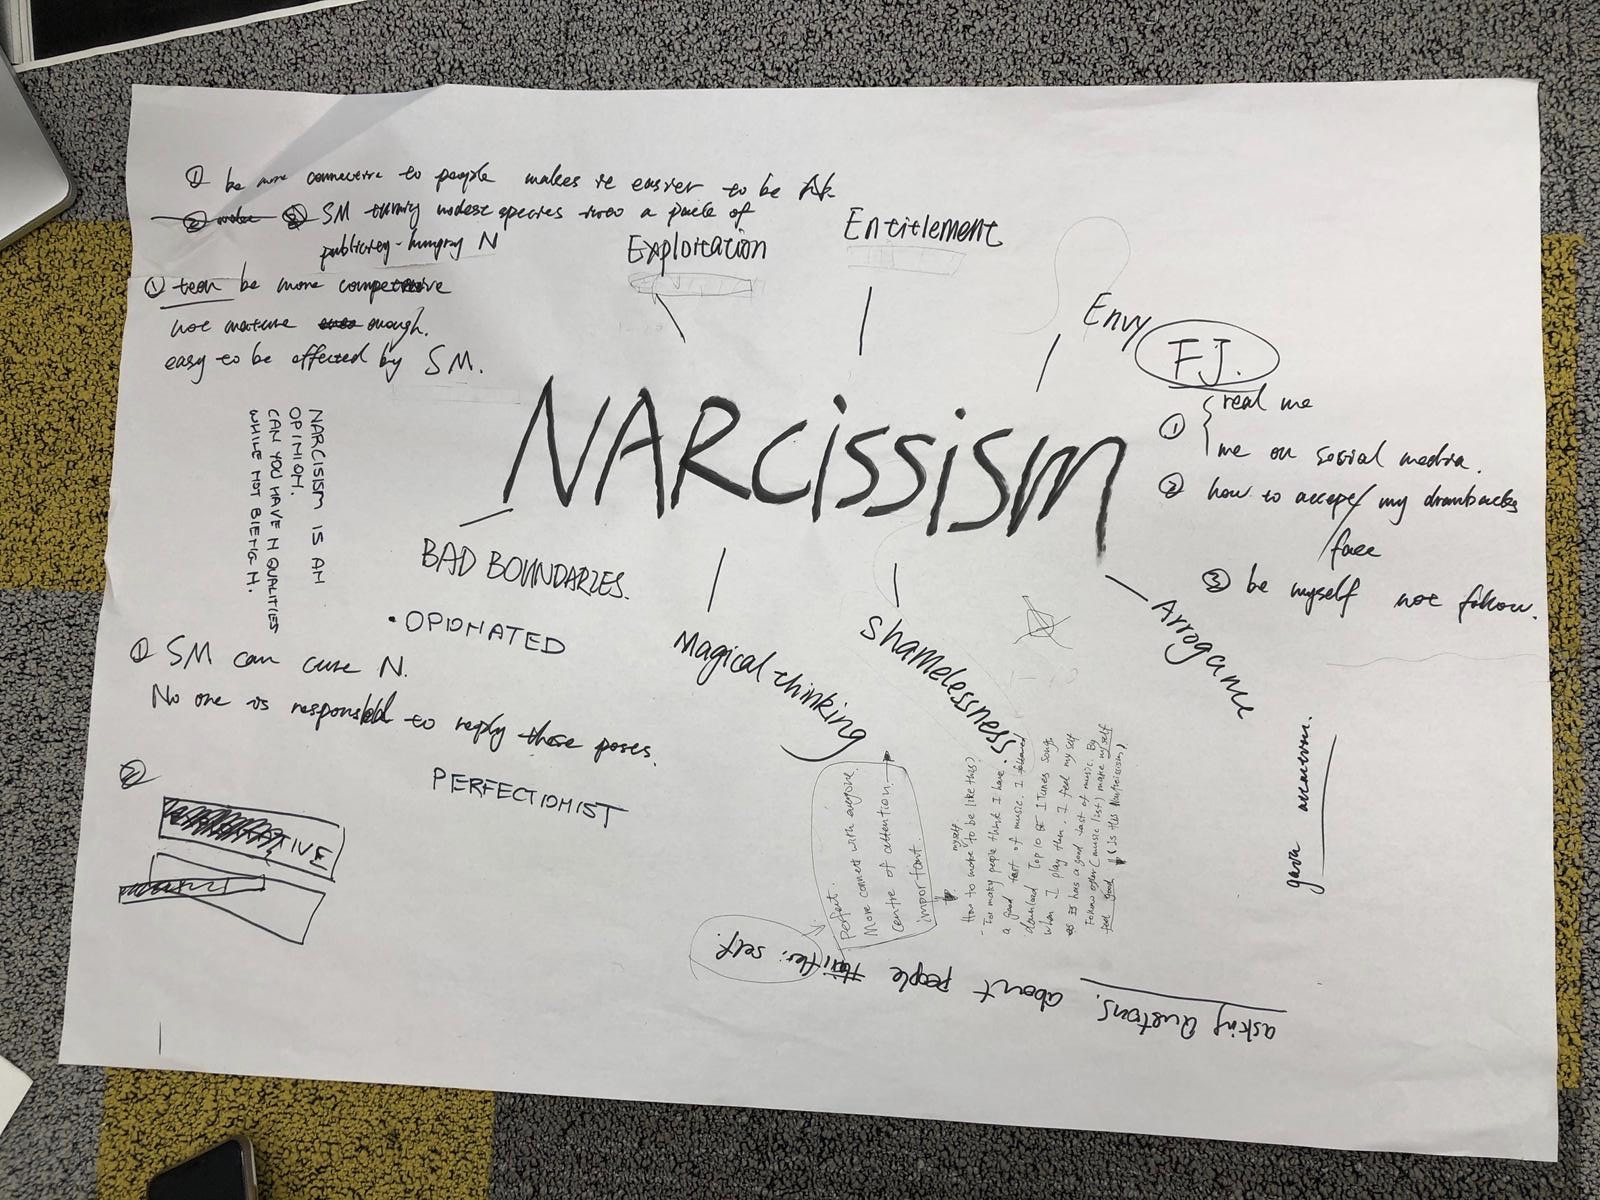 ① be more connective to people makes it easier to be
SM turning modest species into a pack of
publicity-hungry N
Exploitation
Entitlement
Envy
① teen be more
not mature enough.
easy to be affected by SM.
FJ.
① real me
me on social media.
② how to accept/ my drawbacks
/face
③ be myself not follow.
NARCISSISM
NARCISISM IS AN
OPINIOM.
CAN YOU HAVE N QUALITIES
WHILE NOT BIENG N.
BAD BOUNDARIES.
• OPIOMATED
Magical thinking
Shamelessness
Arrogance
① SM can cure N.
No one is to reply those poses.
②
PERFECTIOMIST
Perfect.
More connect with anyone.
centre of attention
important.
How to make myself to be like this?
- Too many people think I have
a good tast of music. I followed
download Top 10 iTunes songs
when I play them. I feel my self
has a good tast of music. By
Follow other (music list) make my self
feel good (is this Narcissism)
asking Questions. about people self.